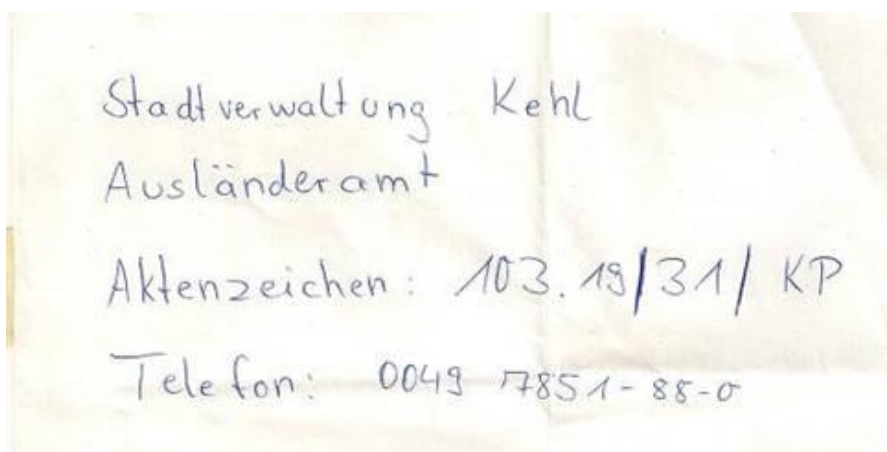 Stadtverwaltung Kehl
Ausländeramt
Aktenzeichen: 103.19/31/ KP
Telefon: 0049 7851-88-0